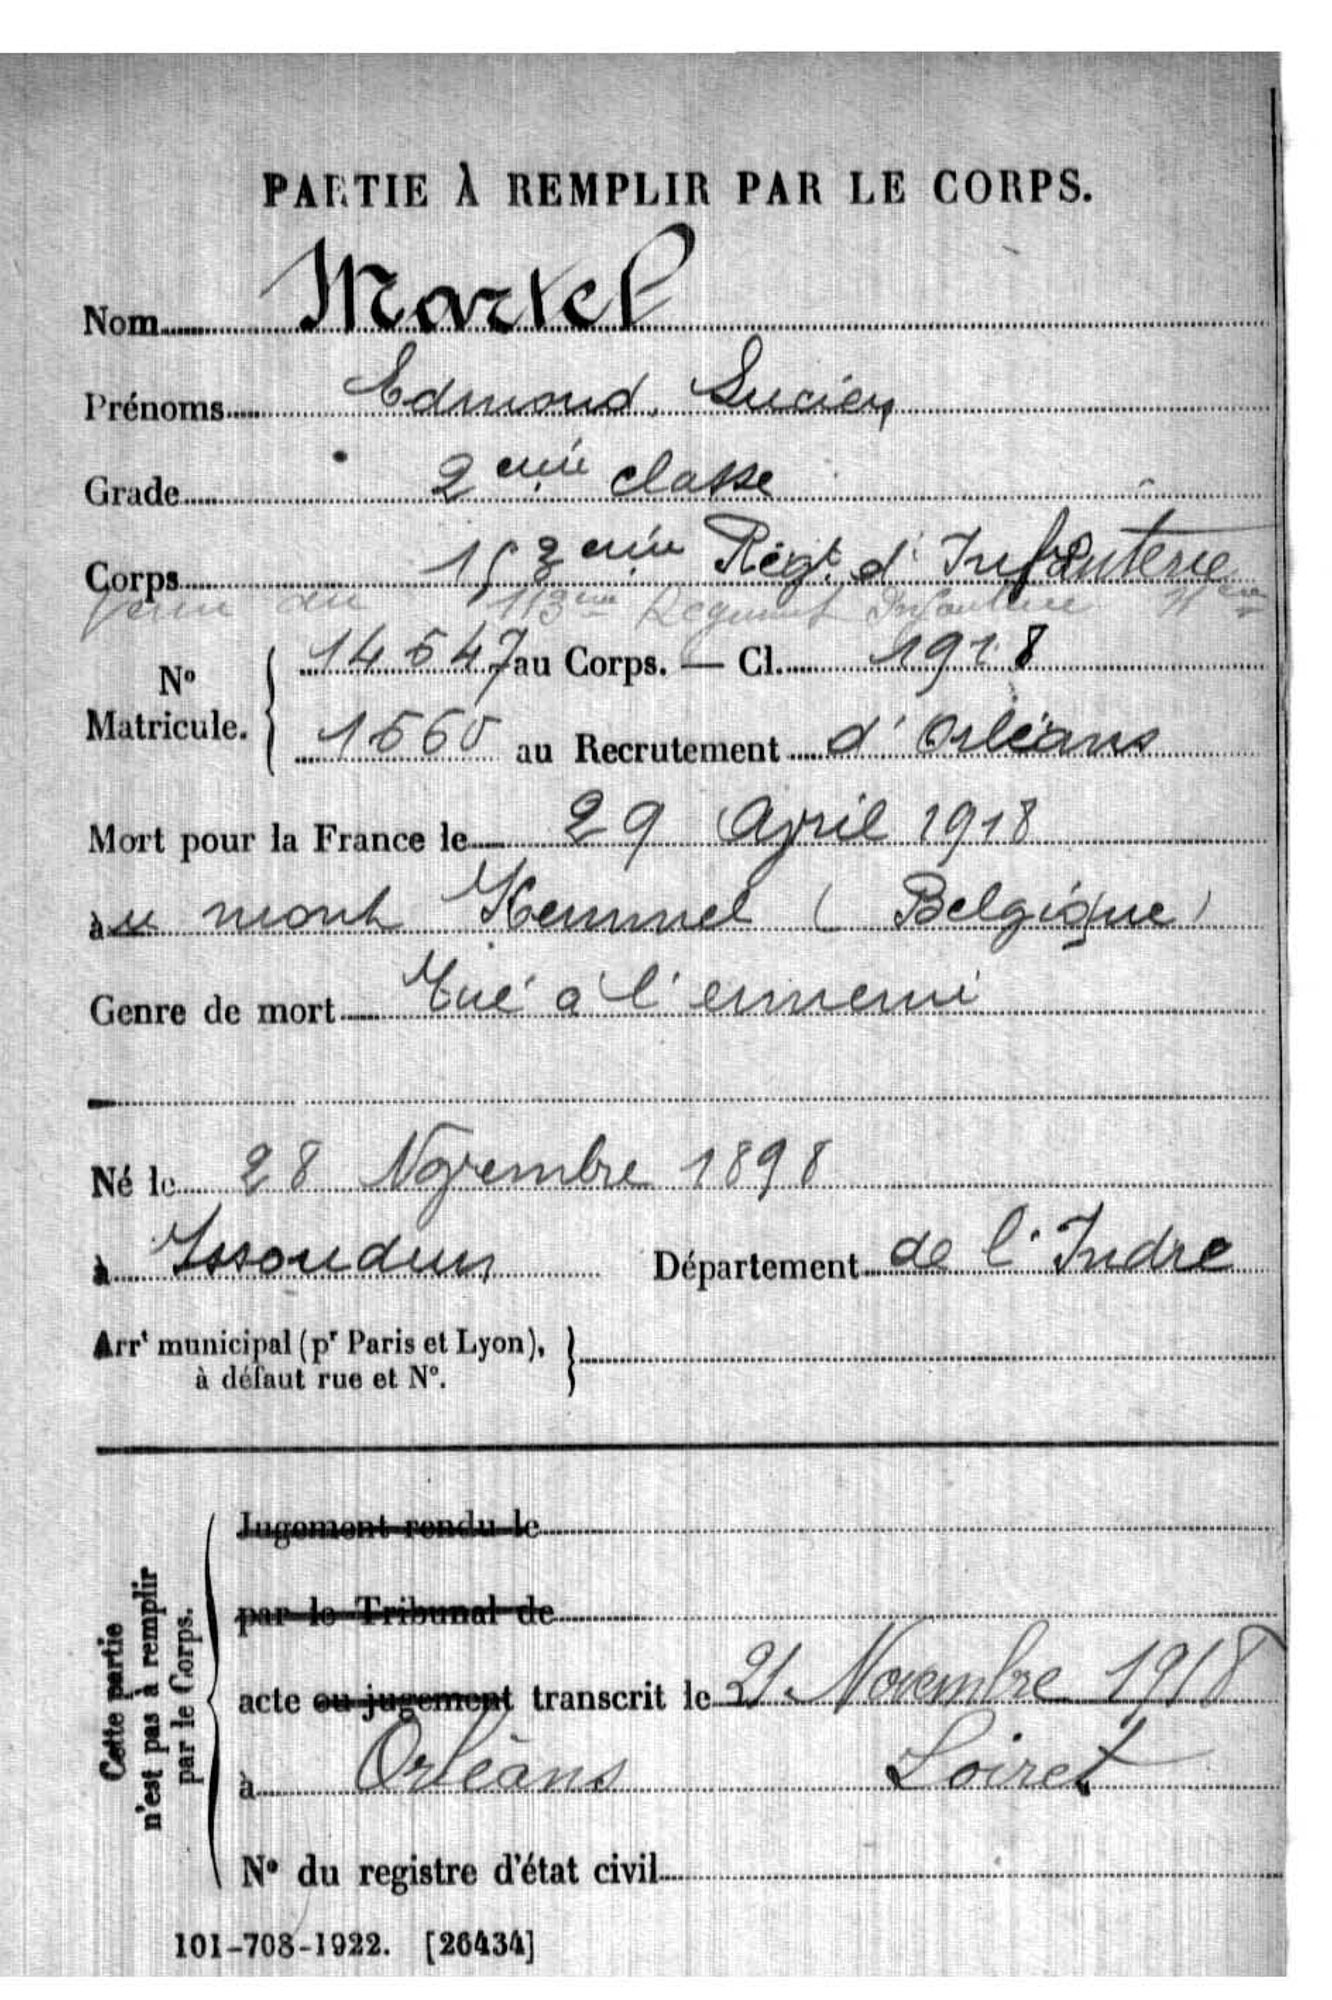 PARTIE À REMPLIR PAR LE CORPS.
Nom Martel
Prénoms Edmond Lucien
Grade 2ème classe
Corps 153ème Régt d'Infanterie
venu du 113ème Régiment Infanterie
N° Matricule. 14547 au Corps. — Cl. 1918
1560 au Recrutement d'Orléans
Mort pour la France le 29 Avril 1918
au mont Kemmel (Belgique)
Genre de mort Tué à l'ennemi
Né le 28 Novembre 1898
à Issoudun Département de l'Indre
Arrt municipal (pr Paris et Lyon),
à défaut rue et N°.
Cette partie n'est pas à remplir par le Corps.
Jugement rendu le
par le Tribunal de
acte ou jugement transcrit le 21 Novembre 1918
à Orléans Loiret
N° du registre d'état civil
101-708-1922. [26434]